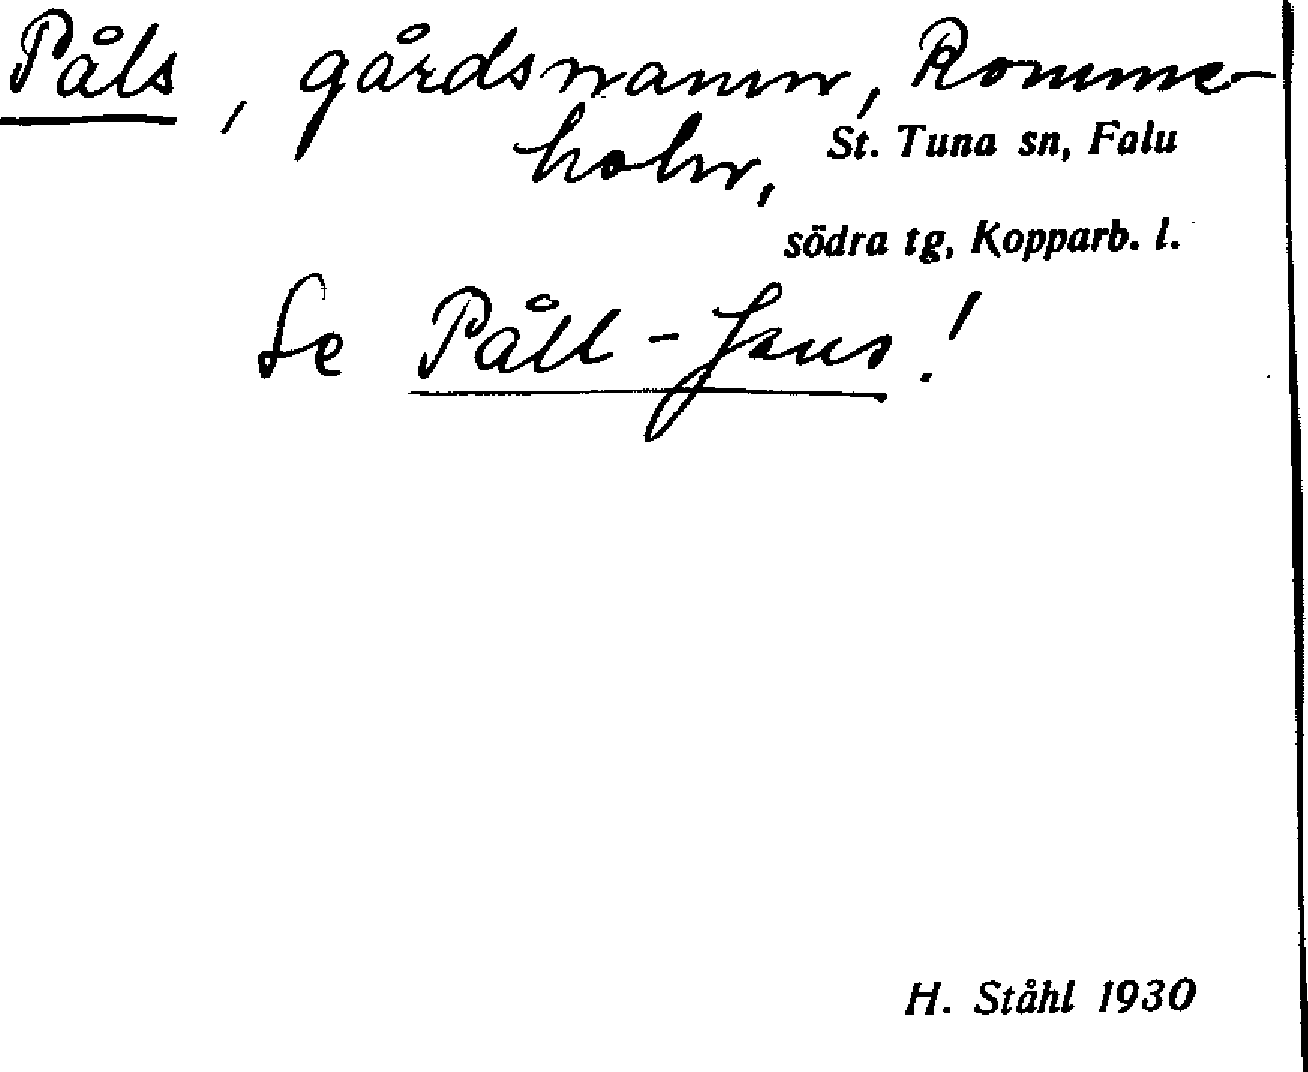 Påls, gårdsnamn, Romme-
holn, St. Tuna sn, Falu
södra tg, Kopparb. l.
Se Påll-Jans!
H. Ståhl 1930